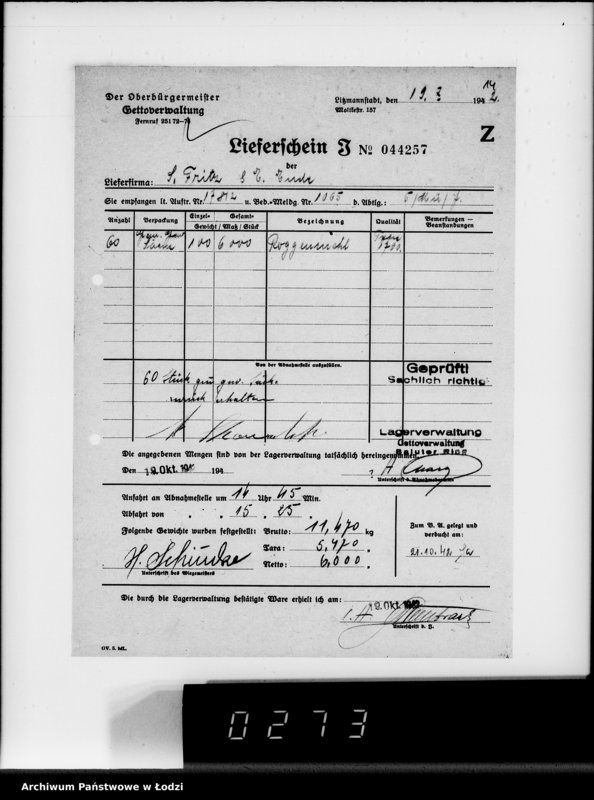 Der Oberbürgermeister
Gettoverwaltung
Fernruf 251 72-74
Litzmannstadt, den 19. 194
Moltkestr. 157
Z
Lieferschein J No 044257
der
Lieferfirma: S. Fritz
Sie empfangen lt. Auftr. Nr. u. Bed.-Meldg. Nr. 1065 d. Abtlg.:
Anzahl Verpackung Einzel- Gesamt- Bezeichnung Qualität Bemerkungen — Beanstandungen
Gewicht / Maß / Stück
60 Säcke 100 6000 Roggenmehl Type 1790
Von der Abnahmestelle auszufüllen.
60 Stück Säcke
zurück erhalten
Geprüft!
Sachlich richtig:
Lagerverwaltung
Gettoverwaltung
Baluter Ring
Die angegebenen Mengen sind von der Lagerverwaltung tatsächlich hereingenommen.
Den 19. Okt. 194
Unterschrift d. Abnahmebeamten
Anfahrt an Abnahmestelle um 14 Uhr 45 Min.
Abfahrt von " " 15 " 25 "
Folgende Gewichte wurden festgestellt: Brutto: 11,470 kg
Tara: 5,470 "
Netto: 6,000 "
Unterschrift des Wiegemeisters
Zum B. A. gelegt und
verbucht am:
21.10.42
Die durch die Lagerverwaltung bestätigte Ware erhielt ich am: 19. Okt. 1942
i. A.
GV. 5. ML.
0273
Archiwum Państwowe w Łodzi